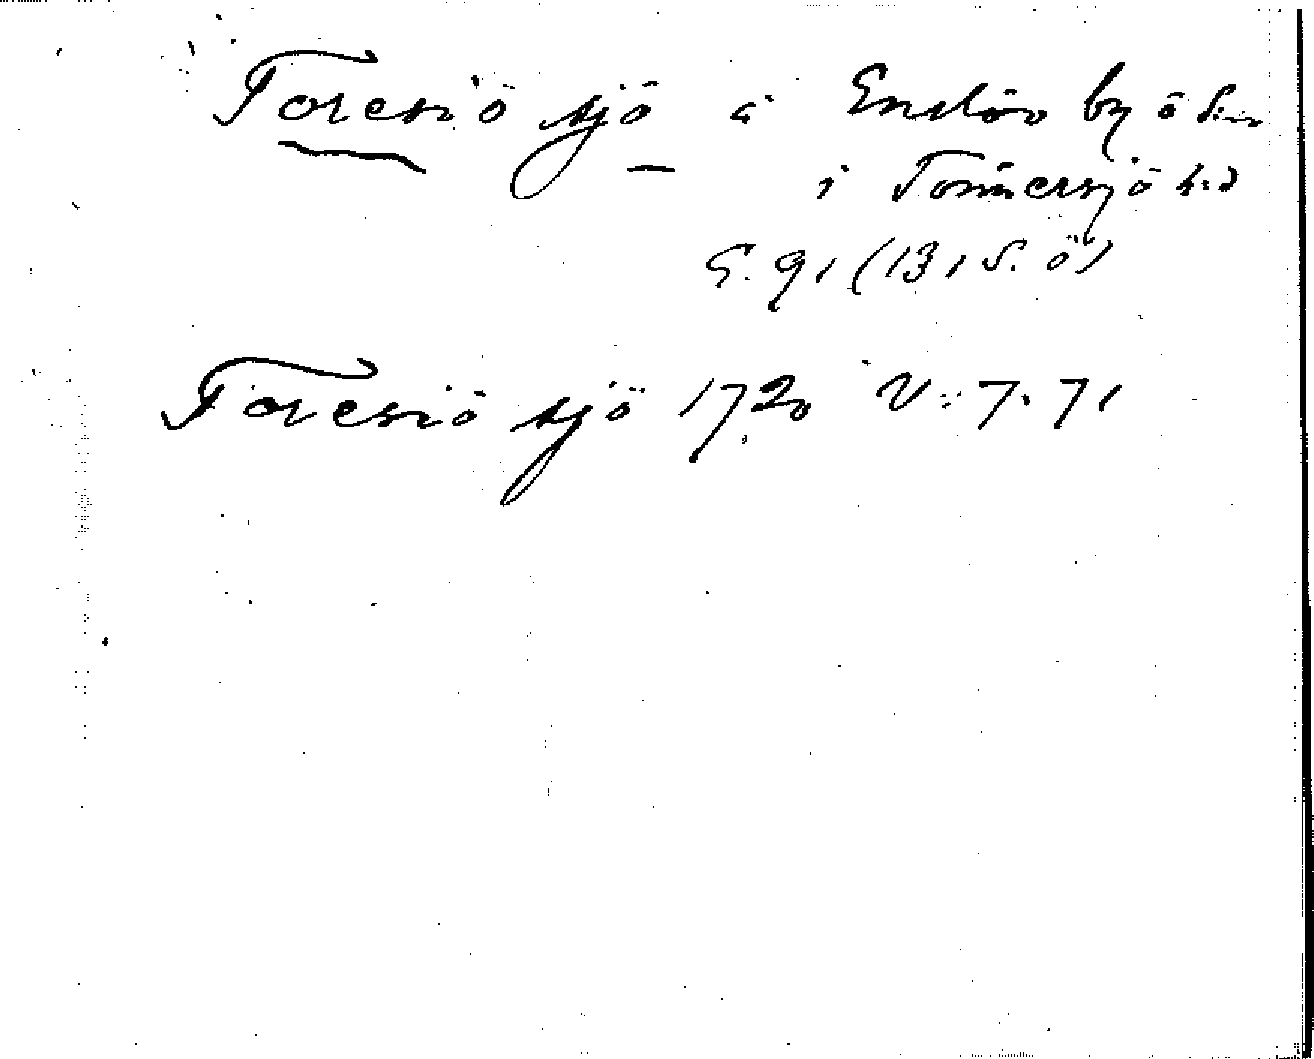 Toresiö sjö å Enslöv by ö
i Tönnersjö hd
G. 91 (131 S. ö)
Toresiö sjö 1720 V: 7. 71